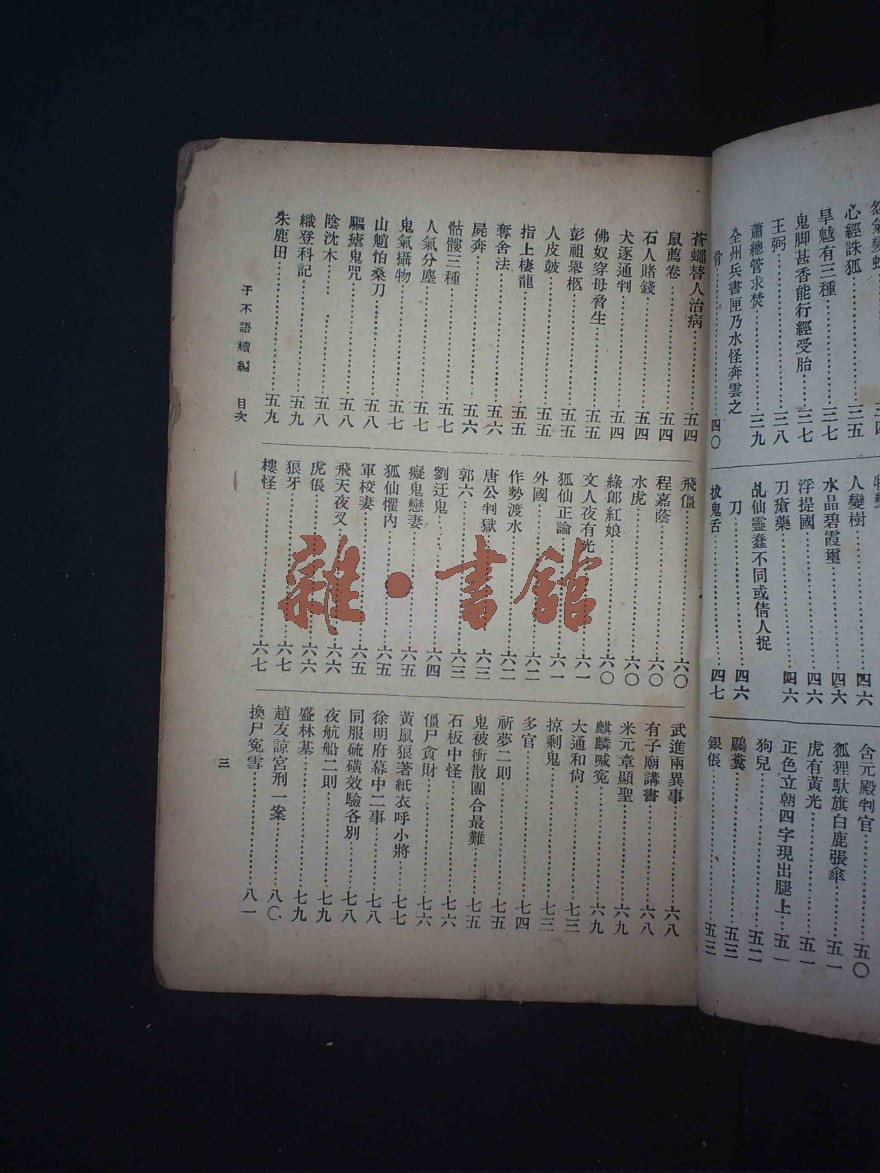 心經誅狐三五
旱魃有三種三七
鬼脚甚香能行經受胎三七
王弼三八
蕭總管求焚三九
全州兵書匣乃水怪奔雲之
骨四〇
人變樹四六
水晶碧霞璽四六
浮提國四六
刀瘡藥四六
乩仙靈蠢不同或倩人捉
刀四六
拔鬼舌四七
含元殿判官五〇
狐狸馱旗白鹿張傘五一
虎有黃光五一
正色立朝四字現出腿上五一
狗兒五二
鵩糞五三
銀倀五三
蒼蠅替人治病五四
鼠薦卷五四
石人賭錢五四
犬逐通判五四
佛奴穿母脅生五五
彭祖舉柩五五
人皮皷五五
指上棲龍五五
奪舍法五六
屍奔五六
骷髏三種五七
人氣分塵五七
鬼氣攝物五七
山魈怕桑刀五八
驅瘧鬼咒五八
陰沈木五八
織登科記五九
朱鹿田五九
飛僵六〇
程嘉蔭六〇
水虎六〇
綠郎紅娘六〇
文人夜有光六一
狐仙正論六一
外國六二
作勢渡水六二
唐公判獄六三
郭六六三
劉迂鬼六四
癡鬼戀妻六五
狐仙懼內六五
軍校妻六五
飛天夜叉六六
虎倀六六
狼牙六七
樓怪六七
武進兩異事六八
有子廟講書六八
米元章顯聖六九
麒麟喊冤六九
大通和尙七三
掠剩鬼七三
多官七四
祈夢二則七五
鬼被衝散團合最難七五
石板中怪七六
僵尸貪財七六
黃鼠狼著紙衣呼小將七七
徐明府幕中二事七八
同服硫磺效驗各別七八
夜航船二則七九
盛林基七九
趙友諒宮刑一案八〇
換尸冤雪八一
子不語續編 目次
三
雜·書館